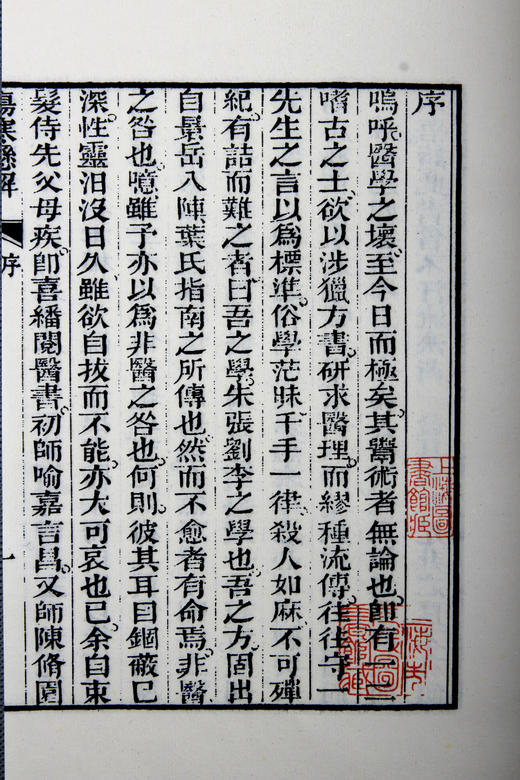 序
嗚呼。醫學之壞。至今日而極矣。其鬻術者無論也。卽有一二
嗜古之士。欲以涉獵方書。研求醫理。而繆種流傳。往往守一
先生之言以爲標準。俗學茫昧。千手一律。殺人如麻。不可殫
紀。有詰而難之者。曰吾之學。朱張劉李之學也。吾之方。固出
自景岳八陣葉氏指南之所傳也。然而不愈者有命焉。非醫
之咎也。噫。雖予亦以爲非醫之咎也。何則。彼其耳目錮蔽已
深。性靈汨沒日久。雖欲自拔而不能。亦大可哀也已。余自束
髮侍先父母疾。卽喜繙閱醫書。初師喻嘉言昌。又師陳脩園
傷寒懸解 序 一